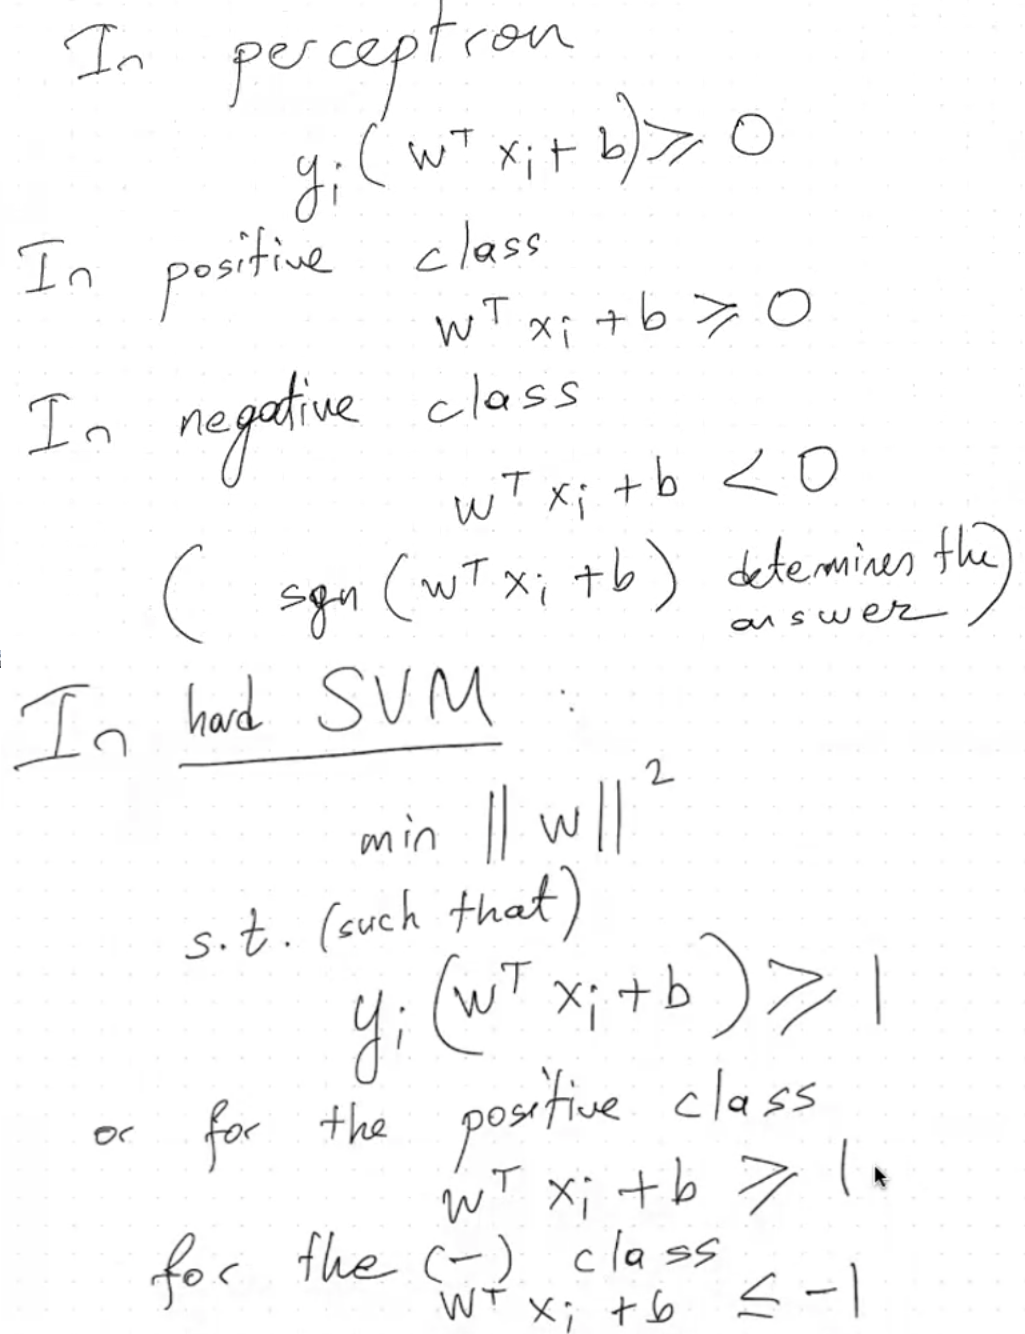 In perceptron
yᵢ(wᵀxᵢ + b) ⩾ 0
In positive class
wᵀxᵢ + b ⩾ 0
In negative class
wᵀxᵢ + b < 0
( sgn (wᵀxᵢ + b) determines the
answer )
In hard SVM :
min ||w||²
s.t. (such that)
yᵢ(wᵀxᵢ + b) ⩾ 1
or for the positive class
wᵀxᵢ + b ⩾ 1
for the (-) class
wᵀxᵢ + b ≤ -1